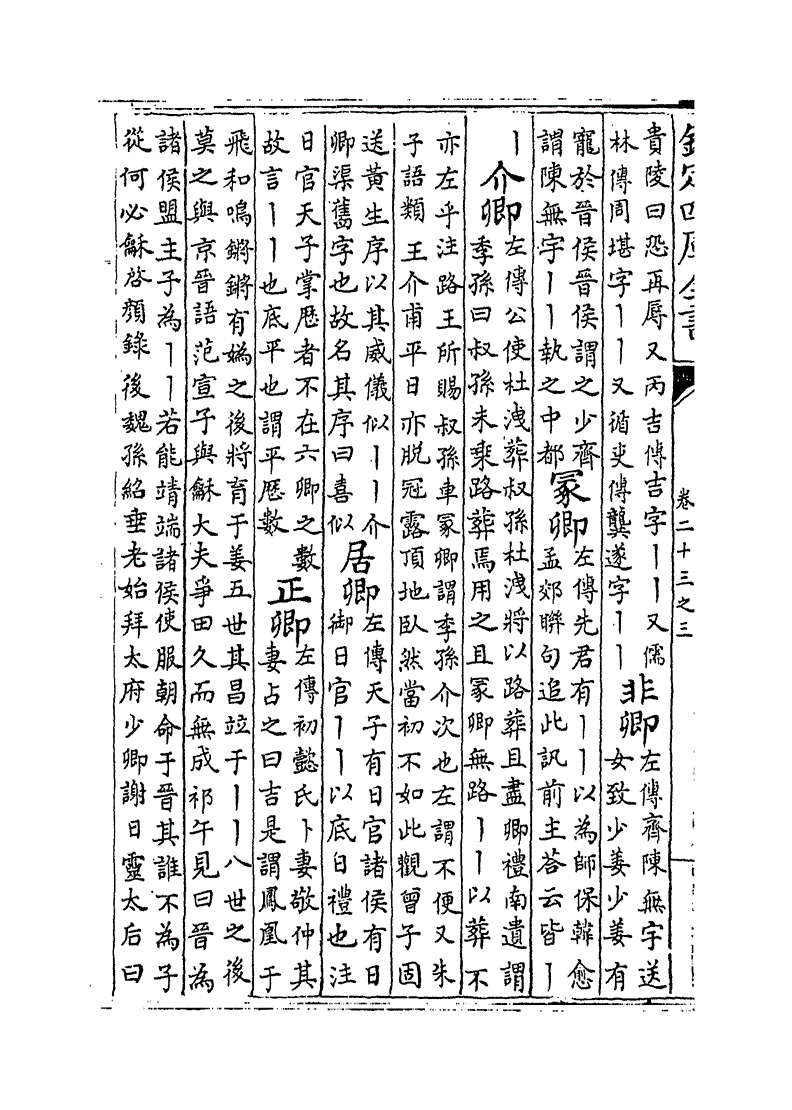 欽定四庫全書
卷二十三之三
貴陵曰恐再辱又丙吉傳吉字丨丨又儒
林傳周堪字丨丨又循吏傳龔遂字丨丨
非卿
左傳齊陳無字送
女致少姜少姜有
寵於晉侯晉侯謂之少齊
謂陳無字丨丨執之中都
冡卿
左傳先君有丨丨以為師保韓愈
孟郊聨句追此訊前主荅云皆丨
丨
介卿
左傳公使杜洩葬叔孫杜洩將以路葬且盡卿禮南遺謂
季孫曰叔孫未乗路葬焉用之且冡卿無路丨丨以葬不
亦左乎注路王所賜叔孫車冡卿謂季孫介次也左謂不便又朱
子語類王介甫平日亦脱冠露頂地臥然當初不如此觀曾子固
送黄生序以其威儀似丨丨介
卿渠舊字也故名其序曰喜似
居卿
左傳天子有日官諸侯有日
御日官丨丨以底日禮也注
日官天子掌厯者不在六卿之數
故言丨丨也底平也謂平厯數
正卿
左傳初懿氏卜妻敬仲其
妻占之曰吉是謂鳳凰于
飛和鳴鏘鏘有媯之後將育于姜五世其昌竝于丨丨八世之後
莫之與京晉語范宣子與龢大夫爭田久而無成祁午見曰晉為
諸侯盟主子為丨丨若能靖端諸侯使服朝命于晉其誰不為子
從何必龢啓顔錄後魏孫紹垂老始拜太府少卿謝日靈太后曰